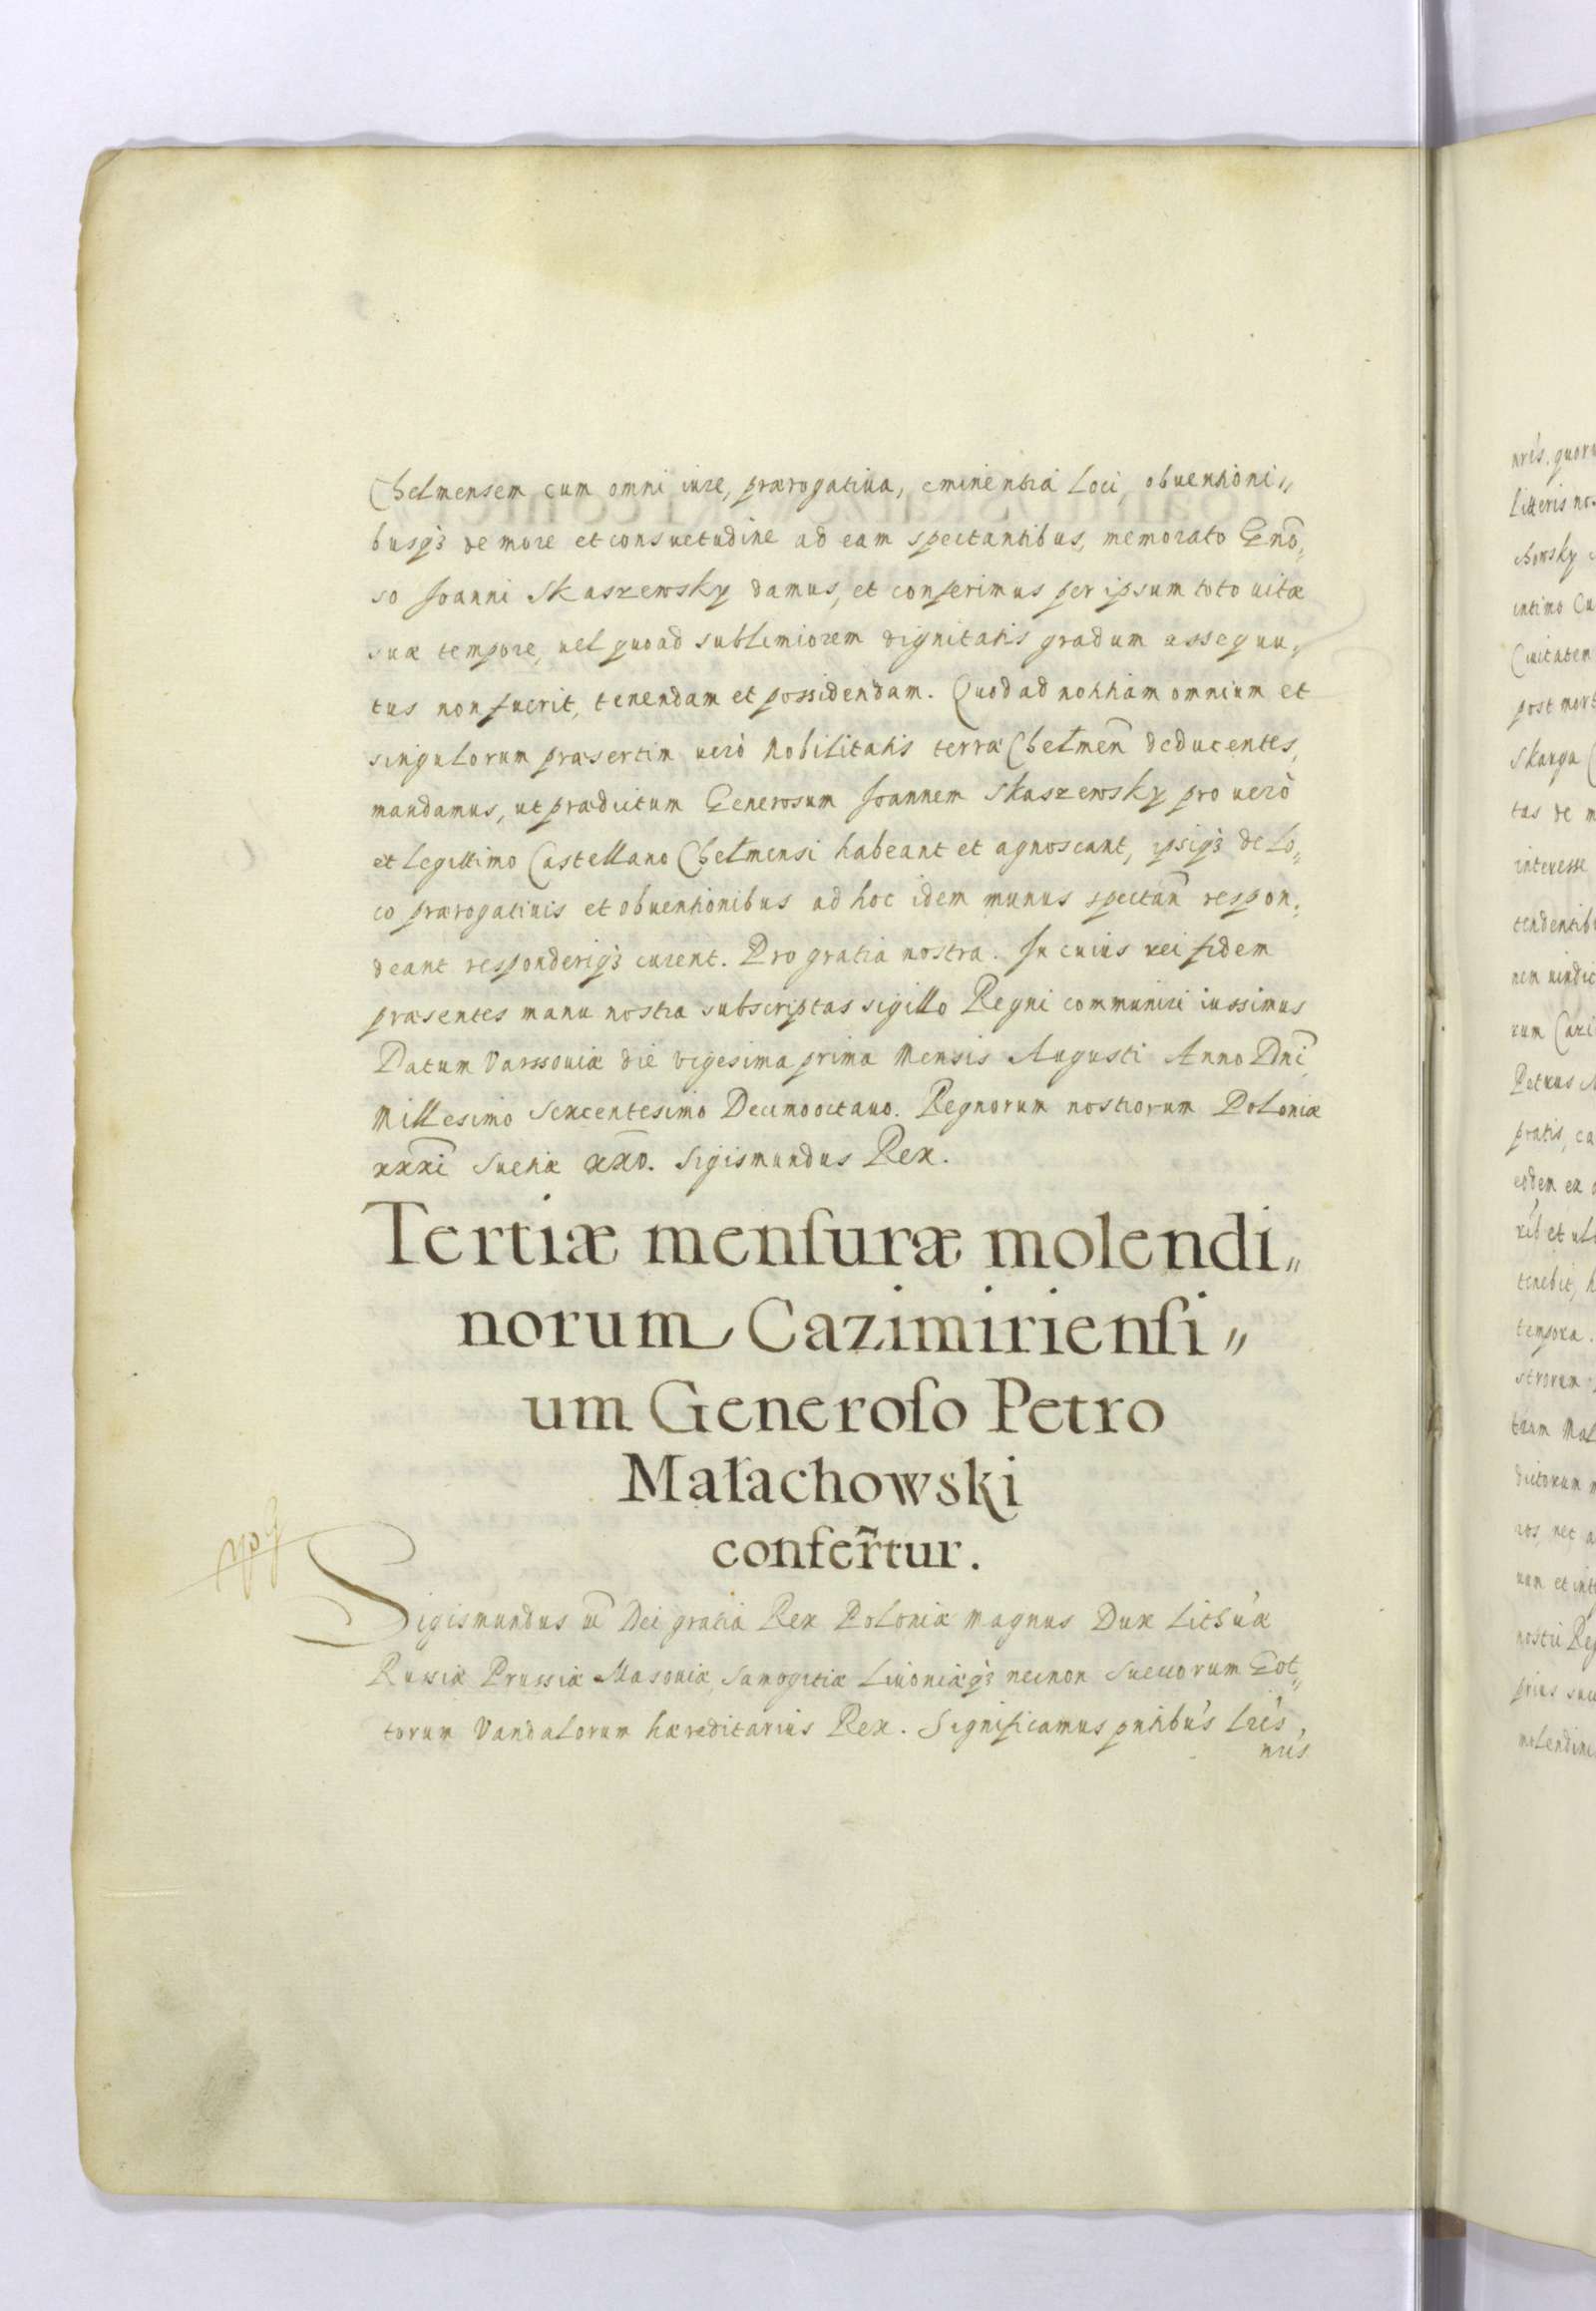 Chelmensem cum omni iure, prærogatiua, eminentia Loci, obuentioni„
busqꝫ de more et consuetudine ad eam spectantibus, memorato Gnō„
so Joanni Skaszewsky damus, et conferimus per ipsum toto uitæ
suæ tempore, uel quoad sublimiorem dignitatis gradum assequu„
tus non fuerit, tenendam et possidendam. Quod ad notitiam omnium et
singulorum præsertim uerò Nobilitatis terræ Chelmen̄ deducentes,
mandamus, ut prædictum Generosum Joannem Skaszewsky pro uerò
et legittimo Castellano Chełmensi habeant et agnoscant, ipsiqꝫ de Lo„
co prærogatiuis et obuentionibus ad hoc idem munus spectan̄ respon„
deant responderiqꝫ curent. Pro gratia nostra. In cuius rei fidem
præsentes manu nostra subscriptas sigillo Regni communiri iussimus
Datum Varssouiæ die vigesima prima Mensis Augusti Anno Dn̄i
Millesimo Sexcentesimo Decimooctauo. Regnorum nostrorum Poloniæ
xxxi Suetiæ xxv. Sigismundus Rex.
Tertiæ menſuræ molendi„
norum Cazimirienſi„
um Generoſo Petro
Małachowski
confer̃tur.
Sigismundus iii Dei gratia Rex Poloniæ Magnus Dux Lithu'æ
Russiæ Prussiæ Masouiæ, Samogitiæ Liuoniæqꝫ necnon Suecorum Got„
torum Vandalorum hæreditarius Rex. Significamus pntibu's Lrı's,
nrı's
nrı's. quor
Litteris nos
chowsky
intimo Cu
Ciuitaten
post mort
Skarga
tas de m
interesse
tendentib
nem uindic
rum Cazi
Petrus
pratis, ca
eodem ex
et ult
tenebit, h
tempora.
strorum
tram Mal
dictorum m
ros, nec a
uum et int
nostri Reg
prius suc
molendino